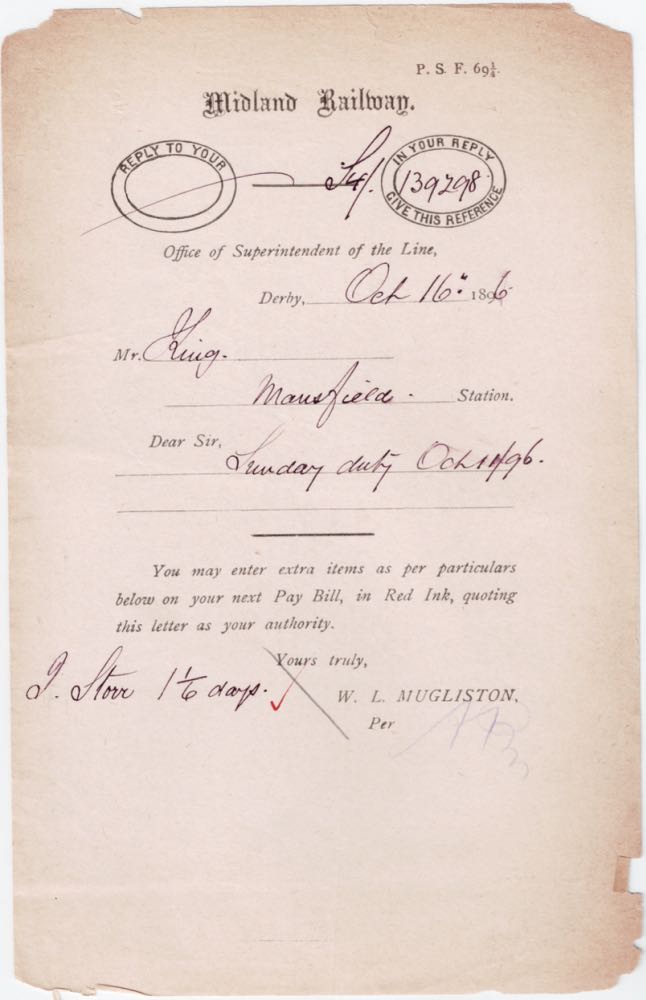 P. S. F. 69¼.
Midland Railway.
REPLY TO YOUR
IN YOUR REPLY
139298
GIVE THIS REFERENCE
Office of Superintendent of the Line,
Derby, Oct 16th 1896
Mr. King.
Mansfield. Station.
Dear Sir,
Sunday duty Oct 11/96.
You may enter extra items as per particulars
below on your next Pay Bill, in Red Ink, quoting
this letter as your authority.
Yours truly,
J. Storr 1⅙ days.
W. L. MUGLISTON,
Per